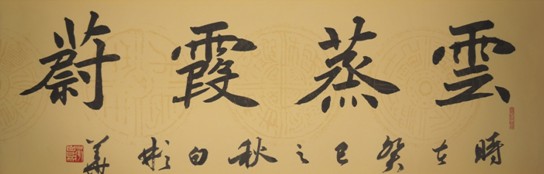 雲蒸霞蔚
時在癸巳之秋旬彬華